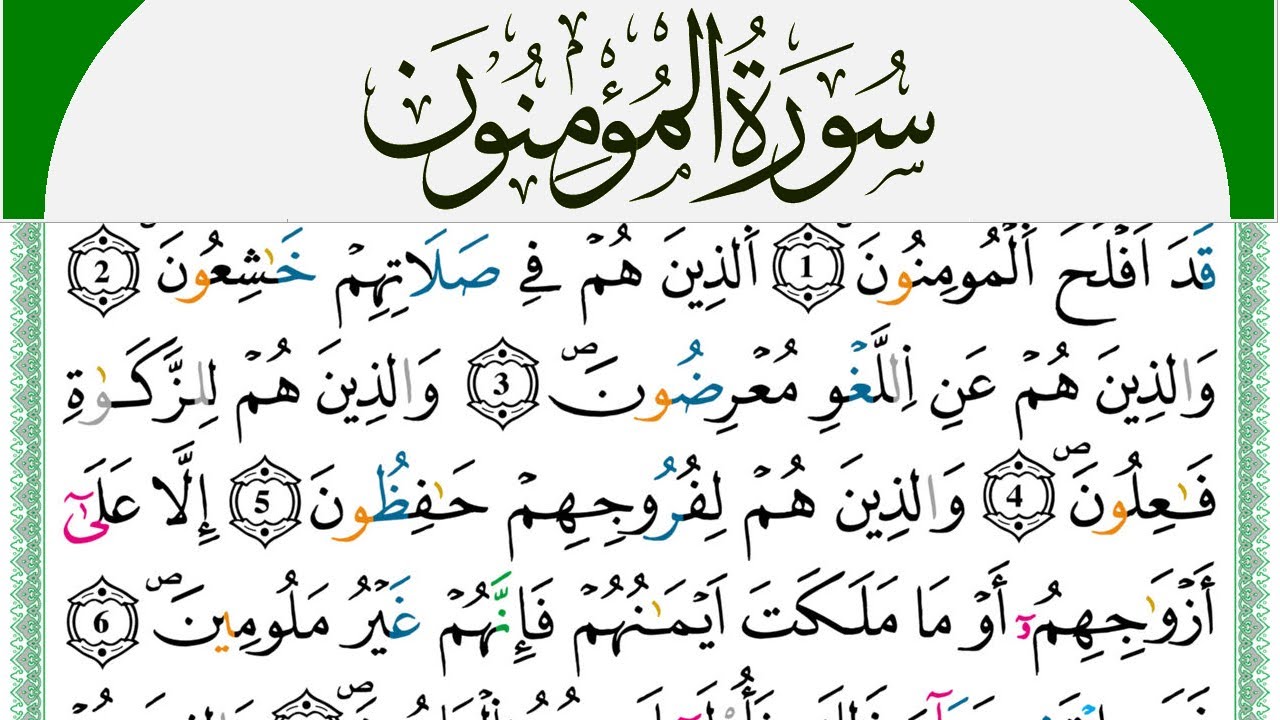 سُورَةُ الْمُؤْمِنُونَ
قَدَ اَفْلَحَ اَلْمُومِنُونَ 1 اَلذِينَ هُمْ فِے صَلَاتِهِمْ خَٰشِعُونَ 2
وَالذِينَ هُمْ عَنِ اِللَّغْوِ مُعْرِضُونَۖ 3 وَالذِينَ هُمْ لِلزَّكَوٰةِ
فَٰعِلُونَۖ 4 وَالذِينَ هُمْ لِفُرُوجِهِمْ حَٰفِظُونَ 5 إِلَّا عَلَىٰٓ
أَزْوَٰجِهِمُۥٓ أَوْ مَا مَلَكَتَ اَيْمَٰنُهُمْ فَإِنَّهُمْ غَيْرُ مَلُومِينَۖ 6